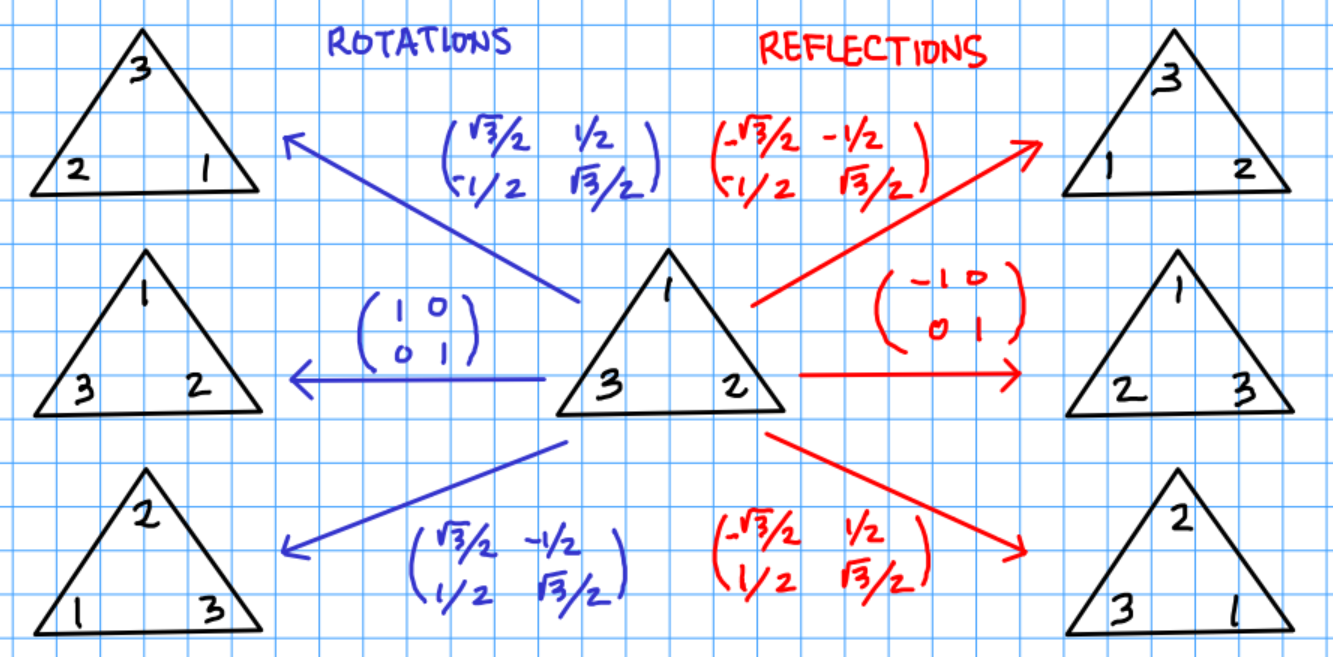 ROTATIONS
REFLECTIONS
3
2 1
√3/2 1/2
-1/2 √3/2
-√3/2 -1/2
-1/2 √3/2
3
1 2
1
3 2
1 0
0 1
1
3 2
-1 0
0 1
1
2 3
2
1 3
√3/2 -1/2
1/2 √3/2
-√3/2 1/2
1/2 √3/2
2
3 1